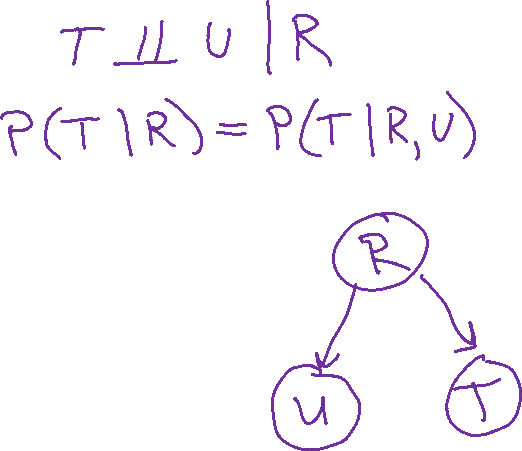 T ⫫ U | R
P(T|R) = P(T|R,U)
R
U T